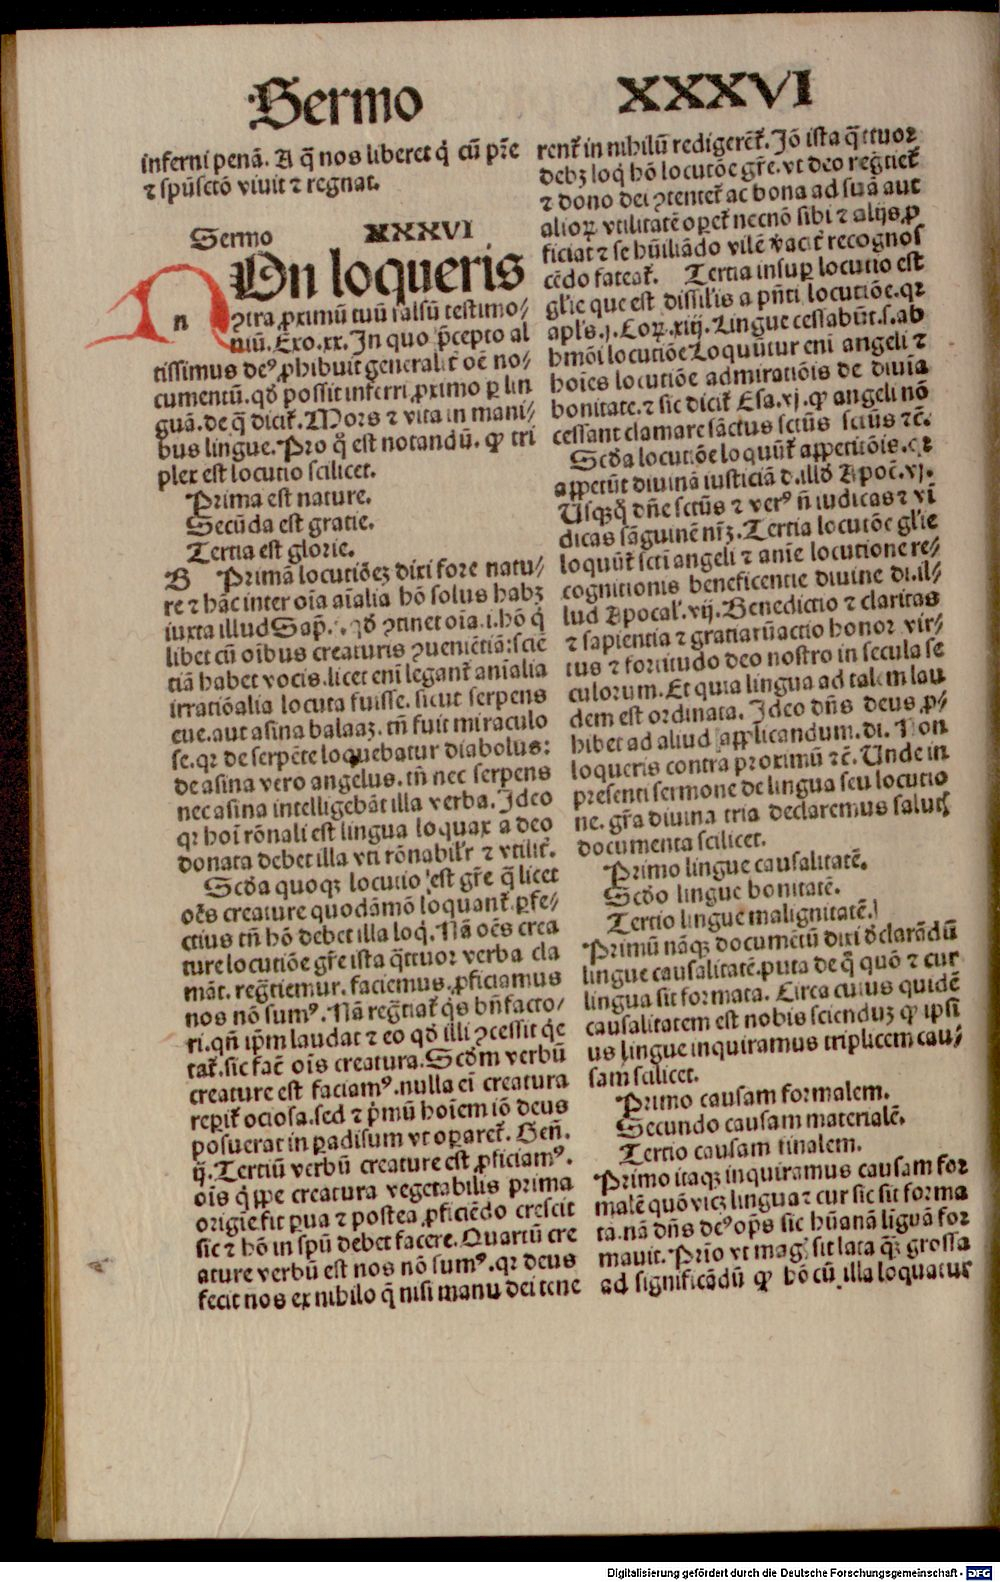 Sermo XXXVI
inferni penā. A q̄ nos liberet q̇ cū pr̄e
⁊ spūsctō viuit ⁊ regnat.
Sermo XXXVI
NOn loqueris
ꝯtra ꝓximū tuū falsū testimo⸗
niū. Exo.xx. In quo p̄cepto al
tissimus deꝰ ꝓhibuit generalit̄ oē no⸗
cumentū. qd̄ possit inferri ꝓximo ꝑ lin
guā. de q̄ dicit̄. Mors ⁊ vita in mani⸗
bus lingue. Pro q̊ est notandū. ꝙ tri
plex est locutio scilicet.
Prima est nature.
Secūda est gratie.
Tertia est glorie.
B Primā locutiōeꝫ dixi fore natu⸗
re ⁊ hāc inter oīa aīalia hō solus habꝫ
iuxta illud Sap̄. qd̄ ꝯtinet oīa .i. hō q̇
libet cū oībus creaturis ꝯueniētiā: sciē
tiā habet vocis. licet enī legant̄ anīalia
irratiōalia locuta fuisse. sicut serpens
eue. aut asina balaaꝫ. tn̄ fuit miraculo
se. qꝛ de serpēte loquebatur diabolus:
de asina vero angelus. tn̄ nec serpens
nec asina intelligebāt illa verba. Ideo
qꝛ hoī rōnali est lingua loquax a deo
donata debet illa vti rōnabilr̄ ⁊ vtilit̄.
Scd̄a quoqꝫ locutio est gr̄e q̄ licet
oēs creature quodāmō loquant̄. ꝑfe⸗
ctius tn̄ hō debet illa loq̇. Nā oēs crea
ture locutiōe gr̄e ista q̄ttuor verba cla
māt. regr̄tiemur. faciemus. ꝓficiamus
nos nō sumꝰ. Nā regr̄tiat̄ q̇s bn̄facto⸗
ri. qn̄ ip̄m laudat ⁊ eo qd̄ illi ꝯcessit q̇e
tat̄. sic fac̄ oīs creatura. Scd̄m verbū
creature est faciamꝰ. nulla eī creatura
reꝑit̄ ociosa. sed ⁊ ṗmū hoīem iō deus
posuerat in paradisum vt oꝑaret̄. Gen̄.
ij. Tertiū verbū creature est ꝓficiamꝰ.
oīs q̄ppe creatura vegetabilis prima
origīe fit ꝑua ⁊ postea ꝓficiēdo crescit
sic ⁊ hō in spū debet facere. Quartū cre
ature verbū est nos nō sumꝰ. qꝛ deus
fecit nos ex nihilo q̄ nisi manu dei tene
rent̄ in nihilū redigerēt̄. Iō ista q̄ttuor
debꝫ loq̇ hō locutōe gr̄e. vt deo regr̄tiet̄
⁊ dono dei ꝯtentet̄ ac bona ad suā aut
alioꝝ vtilitatē oꝑet̄ necnō sibi ⁊ alijs ꝓ
ficiat ⁊ se hūiliādo vilē ⁊ vacit̄ recognos
cēdo fateat̄. Tertia insuꝑ locutio est
gl̄ie que est dissil̄is a pn̄ti locutiōe. qꝛ
apl̄s .j. Coꝝ. xiij. Lingue cessabūt .s. ab
hmōi locutiōe Loquūtur enī angeli ⁊
hoīes locutiōe admiratiōis de diuīa
bonitate. ⁊ sic dicit̄ Esa. vj. ꝙ angeli nō
cessant clamare sāctus sctūs sctūs ⁊c̄.
Scd̄a locutiōe loquūt̄ appetitōis. qꝛ
appetūt diuinā iusticiā d. illd̄ Apoc̄. vj.
Usqꝫq̊ dn̄e sctūs ⁊ verꝰ n̄ iudicas ⁊ vī
dicas sāguinē nr̄ꝫ. Tertia locutōe gl̄ie
loquūt̄ scti angeli ⁊ anīe locutione re⸗
cognitionis beneficentie diuine di. il⸗
lud Apocal̄. vij. Benedictio ⁊ claritas
⁊ sapientia ⁊ gratiarūactio honor vir⸗
tus ⁊ fortitudo deo nostro in secula se
culorum. Et quia lingua ad talem lau
dem est ordinata. Ideo dn̄s deus ꝓ⸗
hibet ad aliud applicandum. di. Non
loqueris contra proximū ⁊c̄. Unde in
presenti sermone de lingua seu locutio
ne. gr̄a diuina tria declaremus salutꝭ
documenta scilicet.
Primo lingue causalitatē.
Scd̄o lingue bonitatē.
Tertio lingue malignitatē.
Primū nāqꝫ documētū dixi d̄clarādū
lingue causalitatē. puta de q̄ quō ⁊ cur
lingua sit formata. Circa cuius quidē
causalitatem est nobis scienduꝫ ꝙ ipsi
us lingue inquiramus triplicem cau⸗
sam scilicet.
Primo causam formalem.
Secundo causam materialē.
Tertio causam finalem.
Primo itaqꝫ inquiramus causam for
malē quō vicꝫ lingua ⁊ cur sic sit forma
ta. nā dn̄s deꝰ op̄s sic hūanā līguā for
mauit. Prīo vt mag̊ sit lata q̄ꝫ grossa
ad significādū ꝙ hō cū illa loquatur
Digitalisierung gefördert durch die Deutsche Forschungsgemeinschaft - DFG